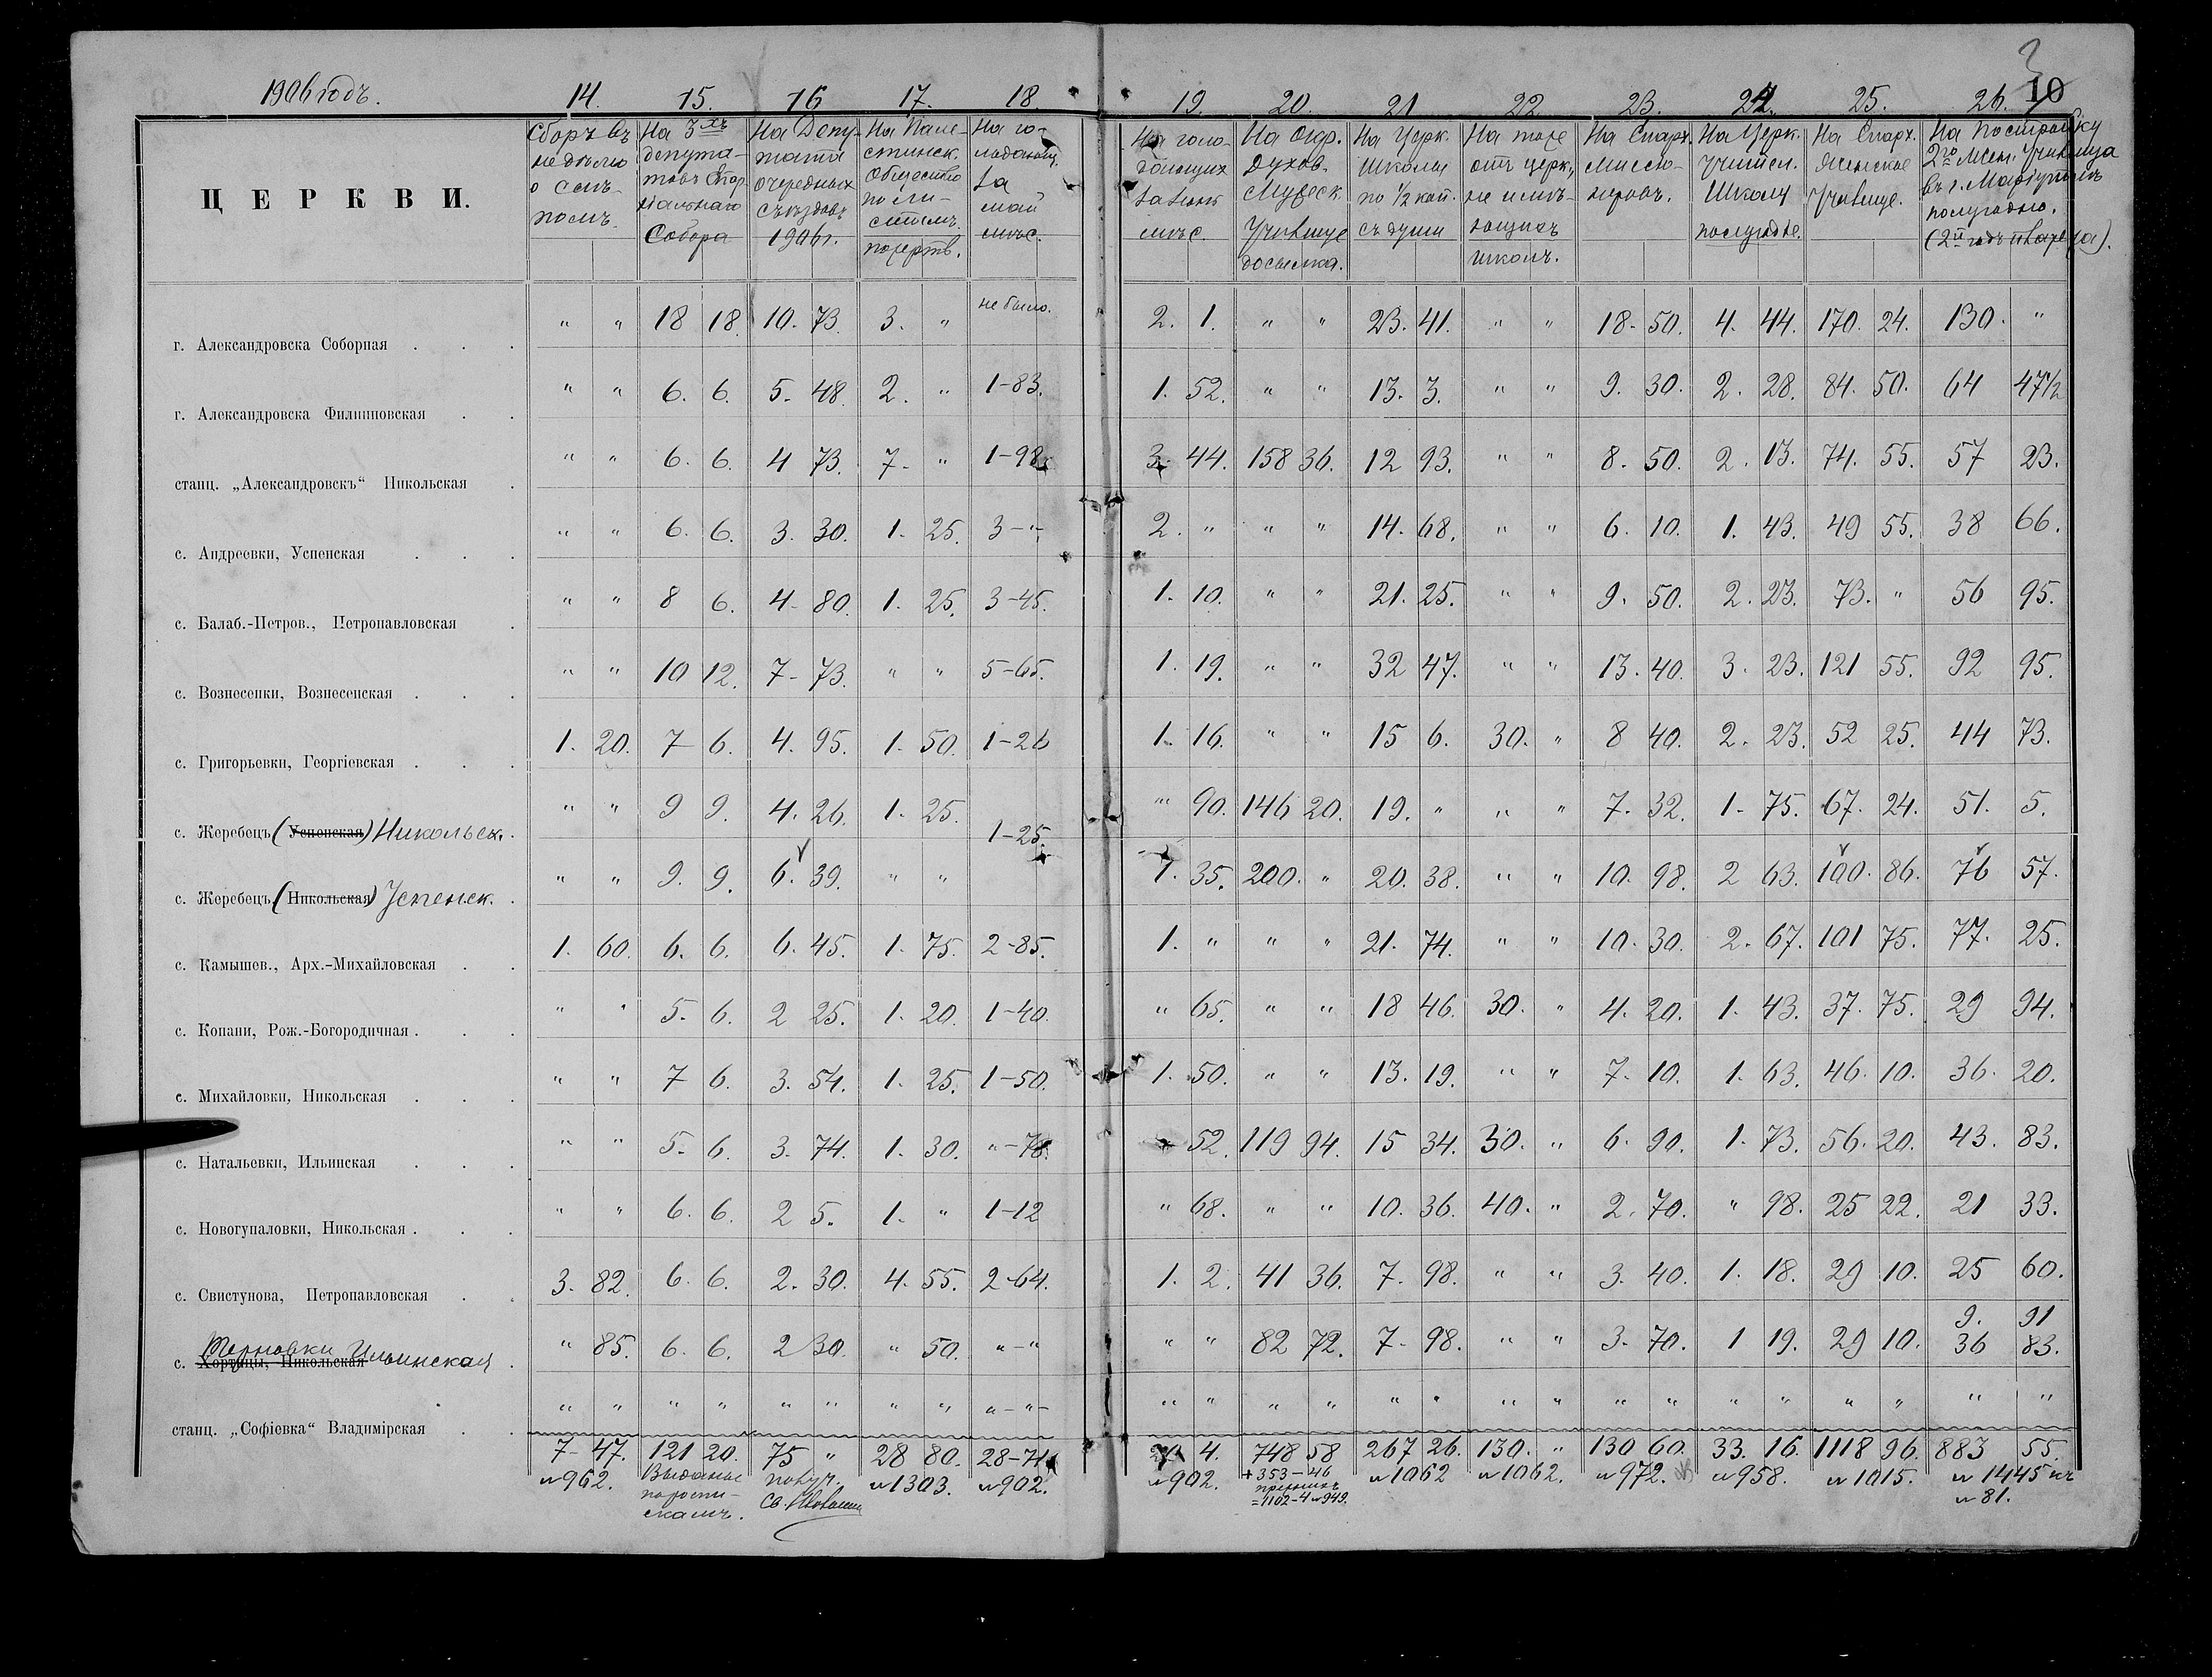 3
10
1906 годъ. 14. 15. 16 17. 18. 19. 20. 21 22 23. 24. 25. 26.
ЦЕРКВИ.
Сборъ въ недѣлю о слѣпомъ.
На 3хъ депутатовъ Епархіальнаго Собора
На Депутата очередныхъ съѣздовъ 1906 г.
На Палестинск. Общество по листамъ пожертв.
На голодающ. за май мѣс.
На голодающихъ за іюнь мѣс.
На Окр. Духов. Мужеск. Училище досылка.
На Церк. Школы по 1/2 коп. съ души
На тоже отъ церк., не имѣющихъ школъ.
На Епарх. миссіонеровъ.
На Церк. учител. Школу полугодіе.
На Епарх. Женское Училище.
На постройку 2го Жен. Училища въ г. Маріуполѣ полугодно. (2й годъ
г. Александровска Соборная . . . " " 18 18. 10. 73. 3. " не было. 2. 1. " " 23. 41. " " 18. 50. 4. 44. 170. 24. 130. "
г. Александровска Филипповская . . " " 6. 6. 5. 48. 2. " 1-83. 1. 52. " " 13. 3. " " 9. 30. 2. 28. 84. 50. 64 47 1/2
станц. „Александровскъ“ Никольская . " " 6. 6. 4 73. 7. " 1-98. 3. 44. 158 36. 12 93. " " 8. 50. 2. 13. 74. 55. 57 23.
с. Андреевки, Успенская . . . " " 6. 6. 3. 30. 1. 25. 3-"- 2. " " " 14. 68. " " 6. 10. 1. 43. 49 55. 38 66.
с. Балаб.-Петров., Петропавловская . " " 8 6. 4. 80. 1. 25. 3-45. 1. 10. " " 21. 25. " " 9. 50. 2. 23. 73. " 56 95.
с. Вознесенки, Вознесенская . . . " " 10 12. 7. 73. " " 5-65. 1. 19. " " 32 47. " " 13. 40. 3. 23. 121 55. 92 95.
с. Григорьевки, Георгіевская . . . 1. 20. 7 6. 4. 95. 1. 50. 1-26 1. 16. " " 15 6. 30. " 8 40. 2. 23. 52 25. 44 73.
с. Жеребецъ (Успенская) Никольск. . " " 9 9. 4. 26. 1. 25. 1-25. " 90. 146 20. 19. " " " 7. 32. 1. 75. 67. 24. 51. 5.
с. Жеребецъ (Никольская) Успенск. . " " 9. 9. 6. 39. " " 1. 35. 200. " 20. 38. " " 10. 98. 2 63. 100. 86. 76 57.
с. Камышев., Арх.-Михайловская . . 1. 60. 6. 6. 6. 45. 1. 75. 2-85. 1. " " " 21. 74. " " 10. 30. 2. 67. 101 75. 77. 25.
с. Копани, Рож.-Богородичная . . . " " 5. 6. 2 25. 1. 20. 1-40. " 65. " " 18 46. 30. " 4. 20. 1. 43. 37. 75. 29 94.
с. Михайловки, Никольская . . . " " 7 6. 3. 54. 1. 25. 1-50. 1. 50. " " 13. 19. " " 7. 10. 1. 63. 46. 10. 36. 20.
с. Натальевки, Ильинская . . . " " 5. 6. 3. 74. 1. 30. "-78. " 52. 119 94. 15 34. 30. " 6. 90. 1. 73. 56. 20. 43. 83.
с. Новогупаловки, Никольская . . . " " 6. 6. 2 5. 1. " 1-12 " 68. " " 10. 36. 40. " 2. 70. " 98. 25 22. 21 33.
с. Свистунова, Петропавловская . . 3. 82. 6. 6. 2. 30. 4. 55. 2-64. 1. 2. 41 36. 7. 98. " " 3. 40. 1. 18. 29 10. 25 60.
9. 91
с. Хортицы, Никольская Терновки Ильинская . " 85. 6. 6. 2 30. " 50. "-" " " 82 72. 7. 98. " " 3. 70. 1 19. 29 10. 36 83.
станц. „Софіевка“ Владимірская . . " " " " " " " " "-"- " " " " " " " " " " " " " " " "
7. 47. 121 20. 75 " 28 80. 28-74 4. 748 58 267 26. 130. " 130 60. 33. 16. 1118 96. 883 55.
№962. Выданы по роспискамъ. получ. Св. №1303. №902. №902. +353-46 прежнихъ =1102-4 №949. №1062 №1062. №972. №958. №1015. №1445
№81.